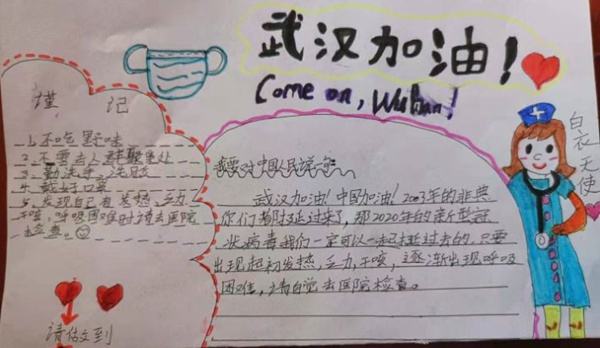 武汉加油！
Come on, Wuhan!
谨记
1、不吃野味
2、不要去人群聚集处
3、勤洗手、洗
4、戴好口罩
5、发现自己有发热、乏力
干咳，呼吸困难时请去医院
检查。
请做到
我要对中国人民说
武汉加油！中国加油！2003年的非典
你们都挺过来了，那2020年的新型冠
状病毒我们一定可以一起挺过去的，只要
出现起初发热，乏力，干咳，逐渐出现呼吸
困难，请自觉去医院检查。
白衣天使